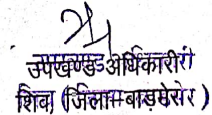 उपखण्ड अधिकारी
शिव (जिला-बाड़मेर)